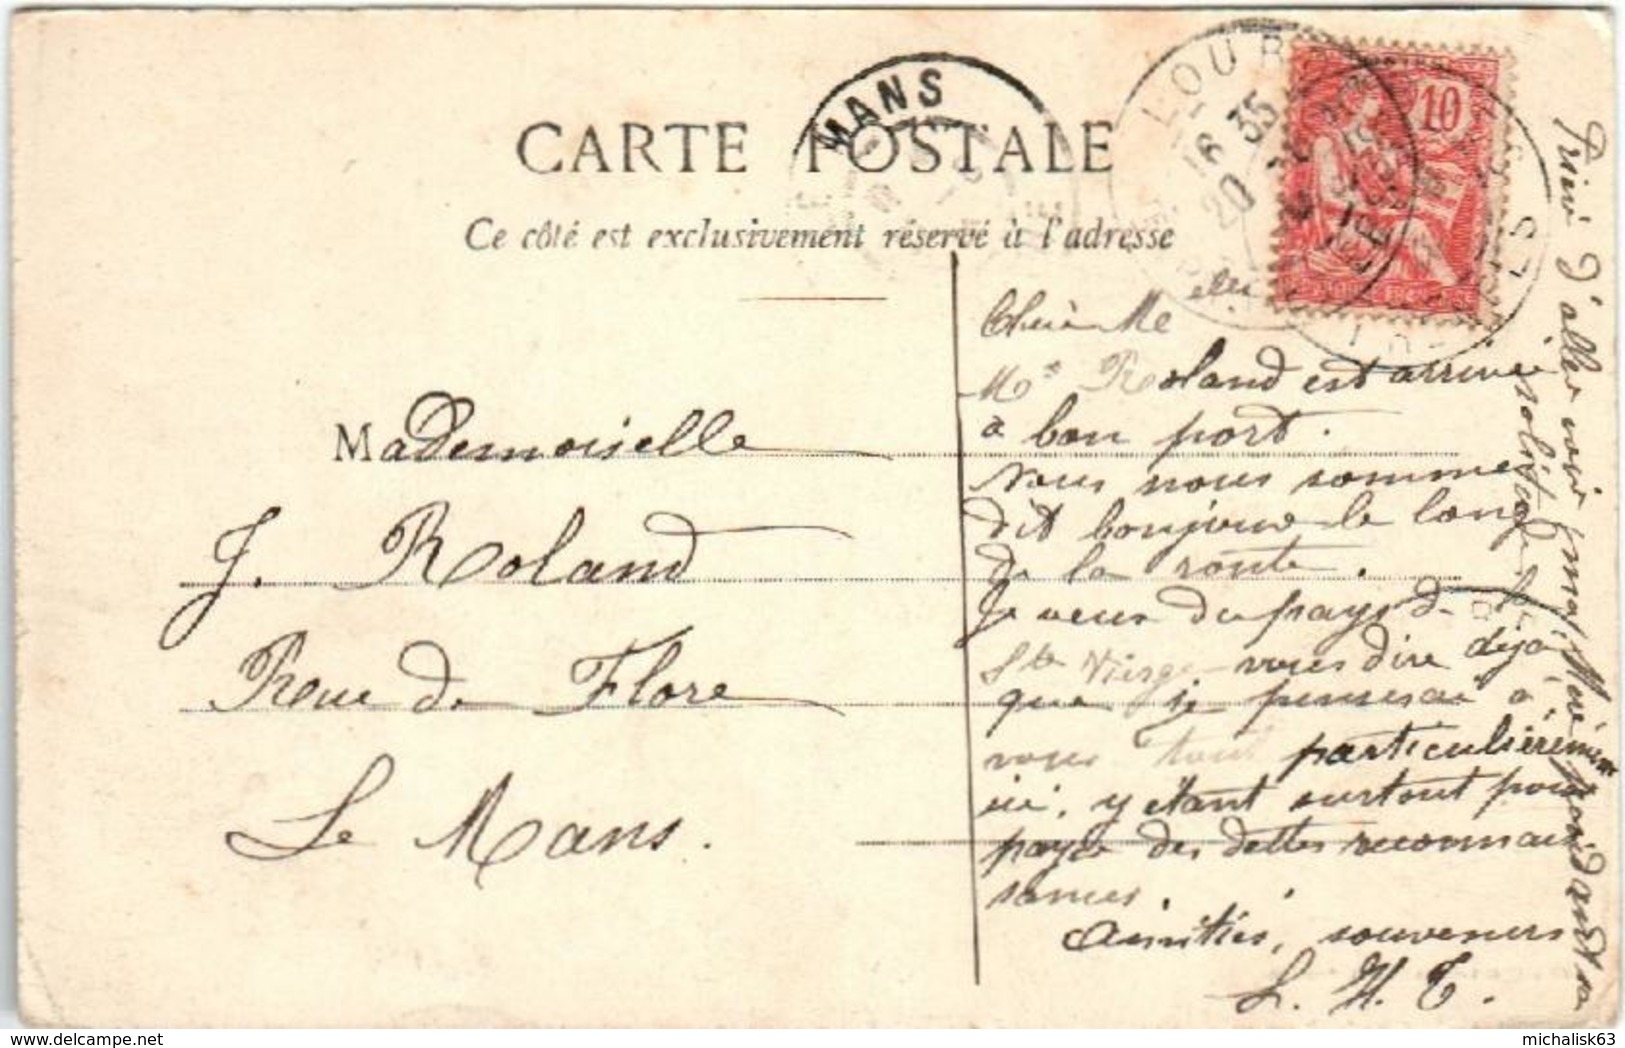 CARTE POSTALE
Ce côté est exclusivement réservé à l'adresse
MANS
LOUR
16 35
20
10
Mademoiselle
J. Roland
Rue de Flore
Le Mans.
Chère Melle
Mr Roland est arrivé
à bon port.
Nous nous sommes
dit bonjour le long
de la route.
Je veux du pays de la
Ste Vierge vous dire déja
que je penserai à
vous tout particulièrement
ici, y étant surtout pour
payer des dettes reconnais
sances.
Amitiés, souvenirs
L. H. T.
Prière d'aller voir ma Mère pendant sa
solitude
michalisk63